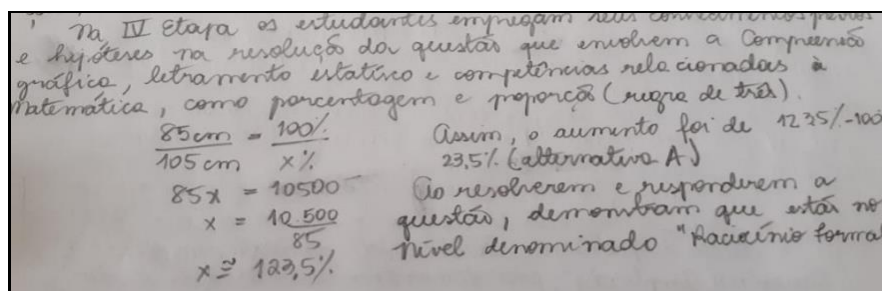 Na IV Etapa os estudantes empregam seus conhecimentos prévios
e hipóteses na resolução da questão que envolvem a Compreensão
gráfica, letramento estatísco e competências relacionadas à
Matemática, como porcentagem e proporção (regra de três).
85cm = 100% Assim, o aumento foi de 123,5%-100
105 cm x% 23,5% (alternativa A)
85x = 10500 Ao resolverem e responderem a
x = 10.500 questão, demonstram que estão no
85 nível denominado "Raciocínio formal
x ≅ 123,5%.